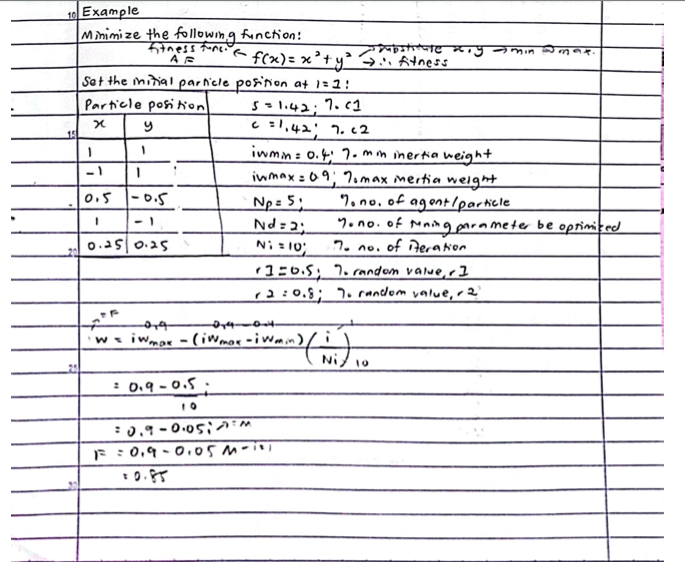 10 Example
Minimize the following function:
fitness func. ← f(x) = x² + y² → substitute x, y → min @ max.
→ ∴ fitness
Set the initial particle position at i=1:
Particle position
x y
1 1
-1 1
0.5 -0.5
1 -1
0.25 0.25
s = 1.42; %. c1
c = 1.42; %. c2
iwmin = 0.4; %. min inertia weight
iwmax = 0.9; %. max inertia weight
Np = 5; %. no. of agent/particle
Nd = 2; %. no. of tuning parameter be optimized
Ni = 10; %. no. of iteration
r1 = 0.5; %. random value, r1
r2 = 0.8; %. random value, r2
0.9 0.9 - 0.4 1
w = iwmax - (iwmax - iwmin) (i/Ni) 10
= 0.9 - 0.5 i
10
= 0.9 - 0.05 i
= 0.9 - 0.05
= 0.85